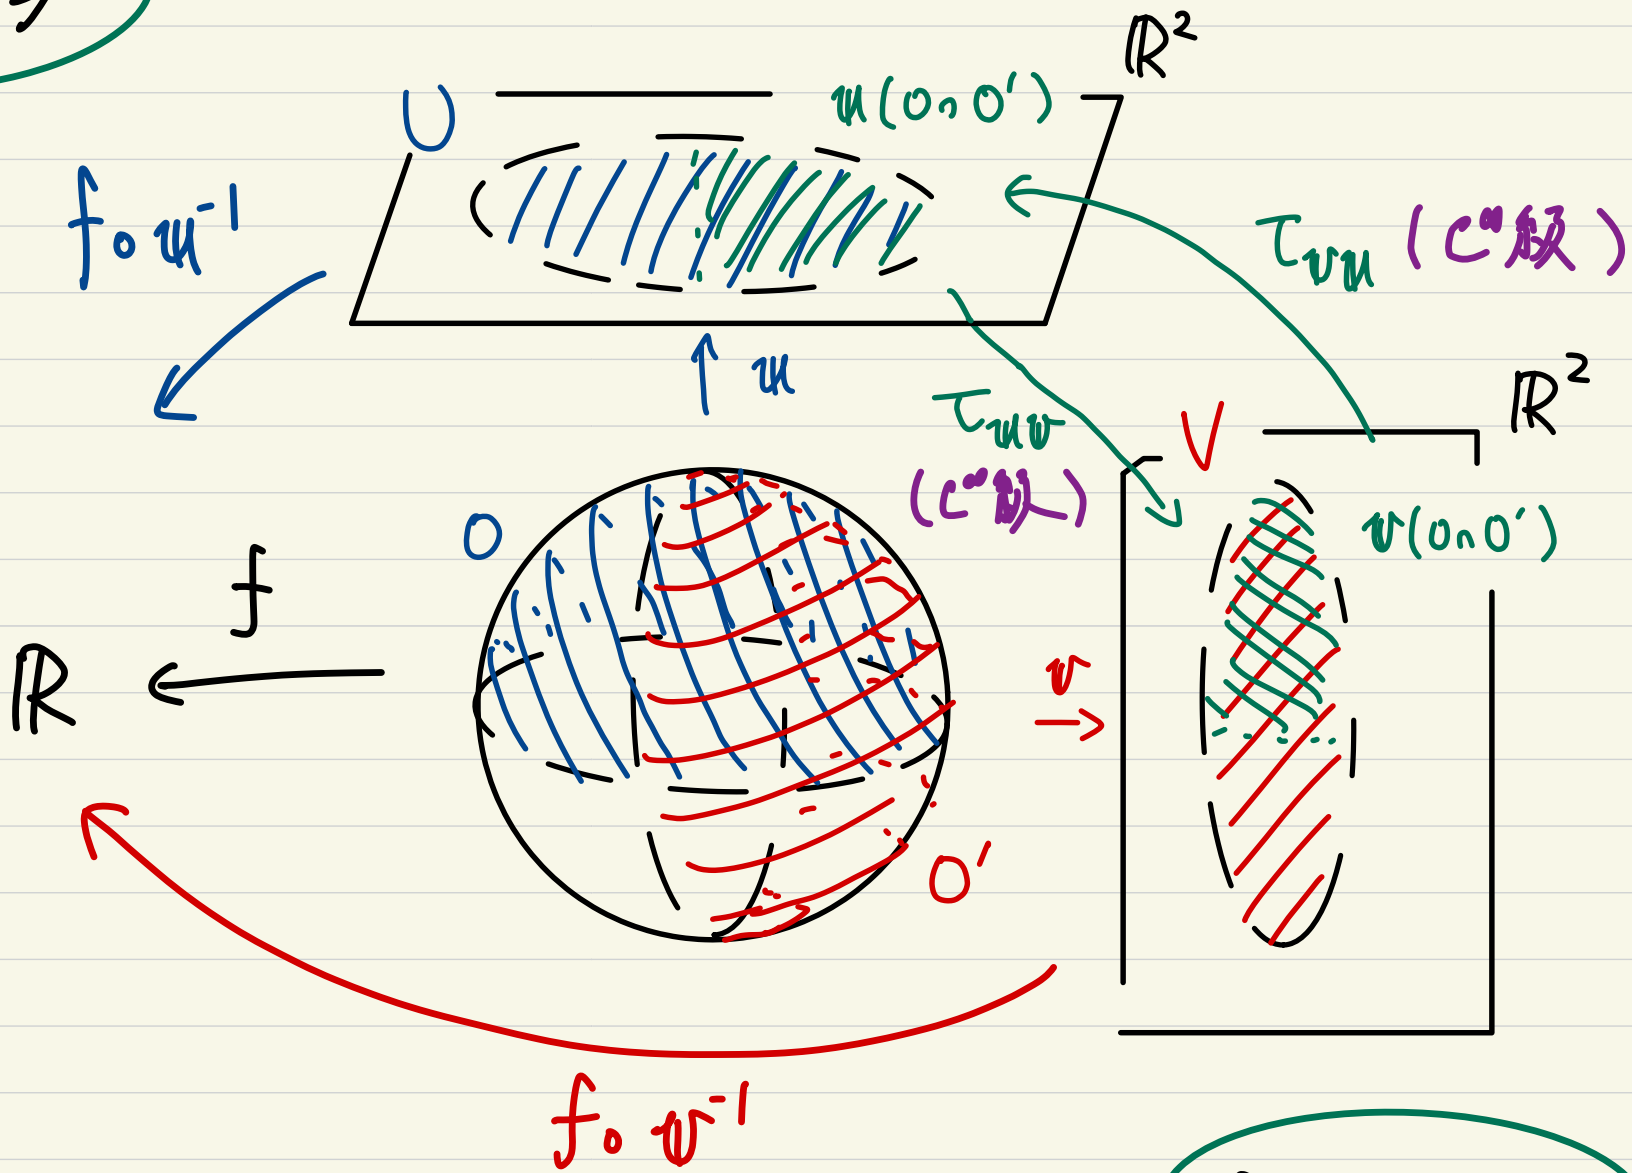 ℝ²
U
𝓊(O∩O′)
f∘𝓊⁻¹
τ𝓋𝓊 (C^∞級)
𝓊
ℝ²
τ𝓊𝓋
(C^∞級)
V
O
𝓋(O∩O′)
f
ℝ
𝓋
O′
f∘𝓋⁻¹